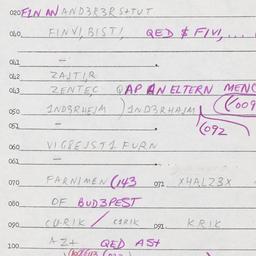 020 FIN AN AND3R3R S+TUT
040 FINVI,BIST/, QED $ FIVI,...
041 —
042 ZAJTIR
043 ZENTEC QAP AN ELTERN MENC
050 1ND3RHEJM ) 1ND3RHAJM (009
051 — (092
060 VIG8EJST1 FURN
061 —
070 FARNIMEN (143 071 X4ALZ3X
080 OF BUD3PEST
090 CURIK / C1RIK 091 KRIK
100 AZ+ QED AS+